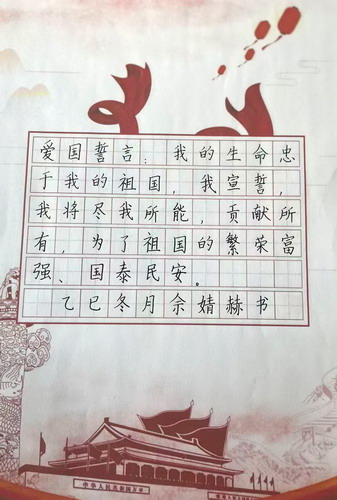 爱国誓言：我的生命忠
于我的祖国，我宣誓，
我将尽我所能，贡献所
有，为了祖国的繁荣富
强、国泰民安。
乙巳冬月佘婧赫书
中华人民共和国万岁